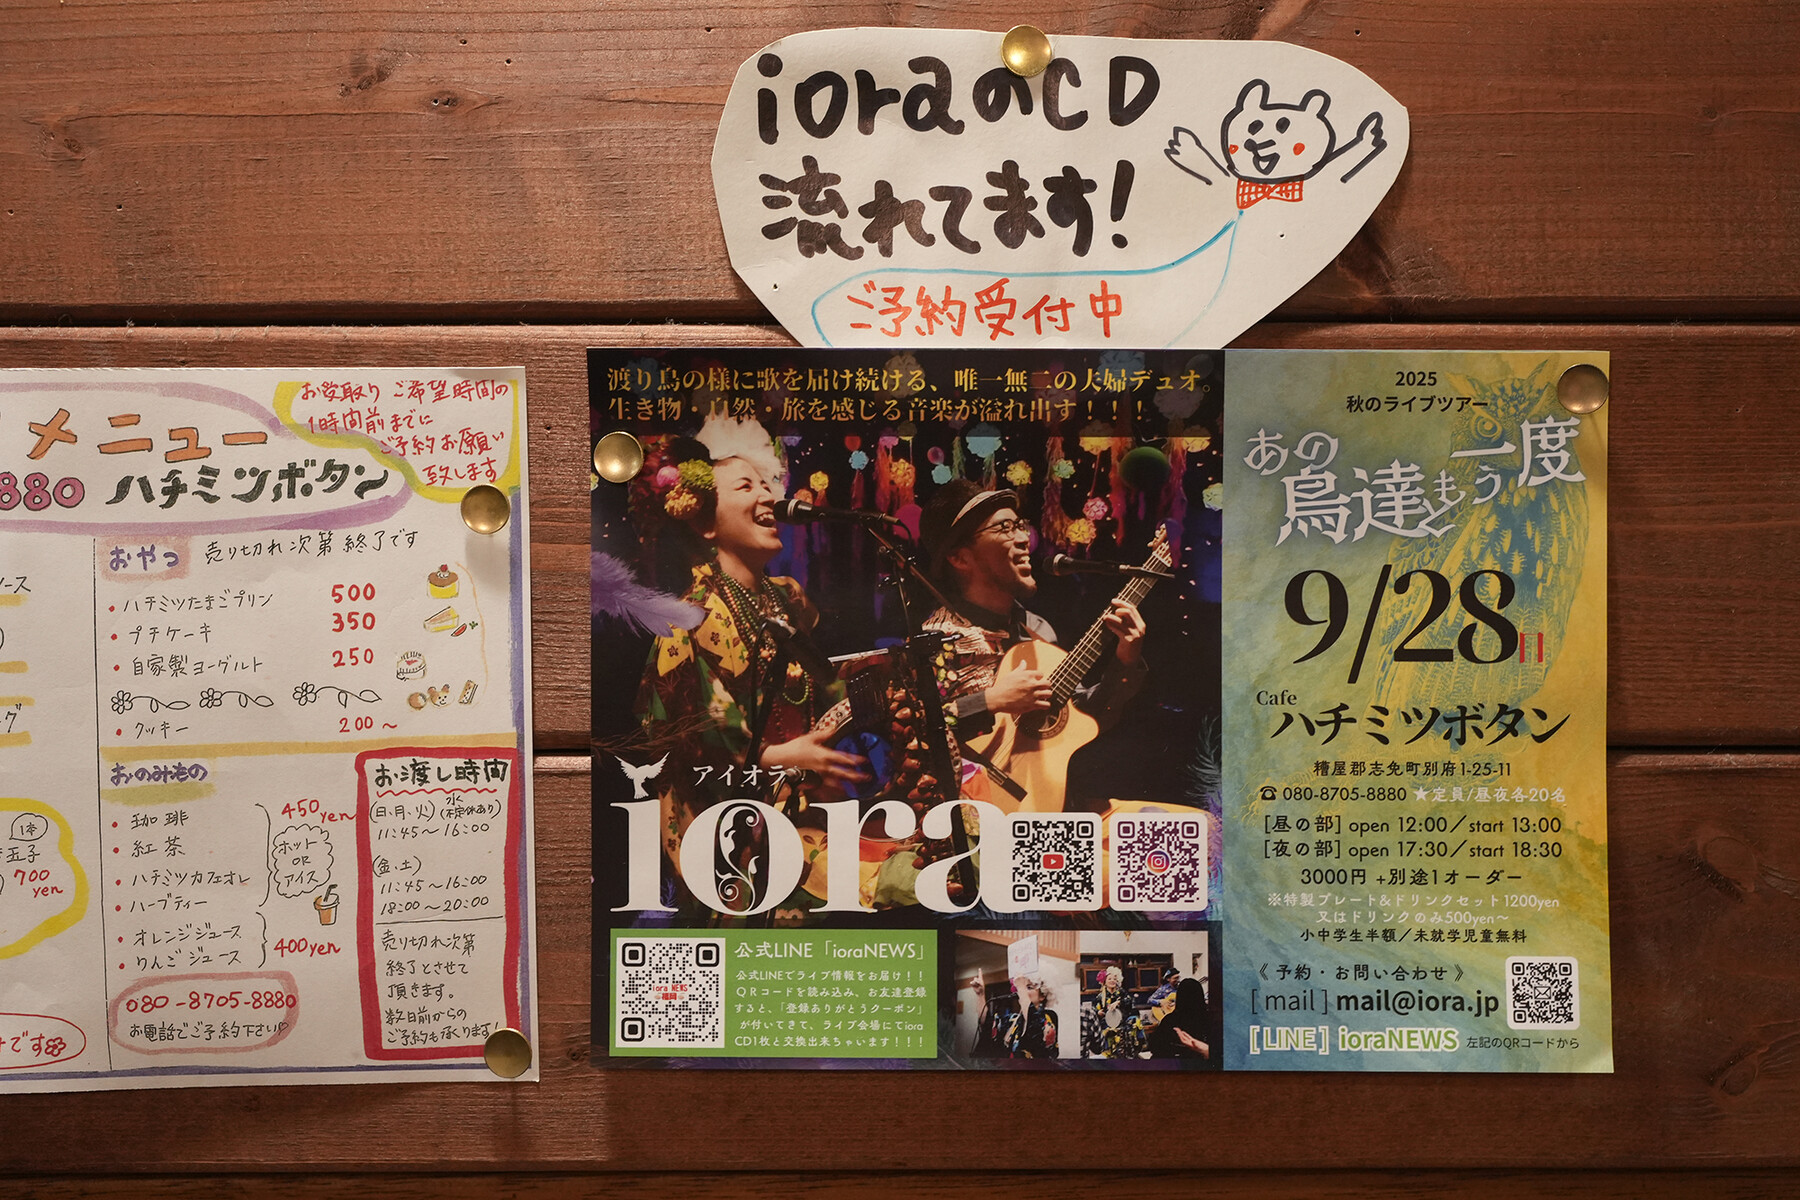 ioraのCD
流れてます!
ご予約受付中
メニュー
880 ハチミツボタン
お受取り ご希望時間の
1時間前までに
ご予約お願い
致します
おやつ 売り切れ次第終了です
・ハチミツたまごプリン 500
・プチケーキ 350
・自家製ヨーグルト 250
・クッキー 200〜
ソース
グ
1本
玉子
700
yen
です
おのみもの
・珈琲
・紅茶
・ハチミツカフェオレ
・ハーブティー
450yen
ホット
OR
アイス
・オレンジジュース
・りんごジュース
400yen
080-8705-8880
お電話でご予約下さい♡
お渡し時間
(日、月、火)(水 不定休あり)
11:45〜16:00
(金、土)
11:45〜16:00
18:00〜20:00
売り切れ次第
終了とさせて
頂きます。
数日前からの
ご予約も承ります!
渡り鳥の様に歌を届け続ける、唯一無二の夫婦デュオ。
生き物・自然・旅を感じる音楽が溢れ出す!!!
アイオラ
iora
iora NEWS
福岡
公式LINE「ioraNEWS」
公式LINEでライブ情報をお届け!!
QRコードを読み込み、お友達登録
すると、「登録ありがとうクーポン」
が付いてきて、ライブ会場にてiora
CD1枚と交換出来ちゃいます!!!
2025
秋のライブツアー
あの鳥達もう一度
9/28日
Cafe
ハチミツボタン
糟屋郡志免町別府1-25-11
☎ 080-8705-8880 ★定員/昼夜各20名
[昼の部] open 12:00/start 13:00
[夜の部] open 17:30/start 18:30
3000円 +別途1オーダー
※特製プレート&ドリンクセット1200yen
又はドリンクのみ500yen〜
小中学生半額/未就学児童無料
《 予約・お問い合わせ 》
[mail] mail@iora.jp
[LINE] ioraNEWS 左記のQRコードから